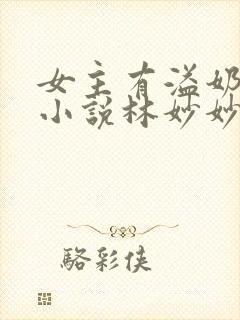 女主有溢奶
小說林妙妙
駱彩俠